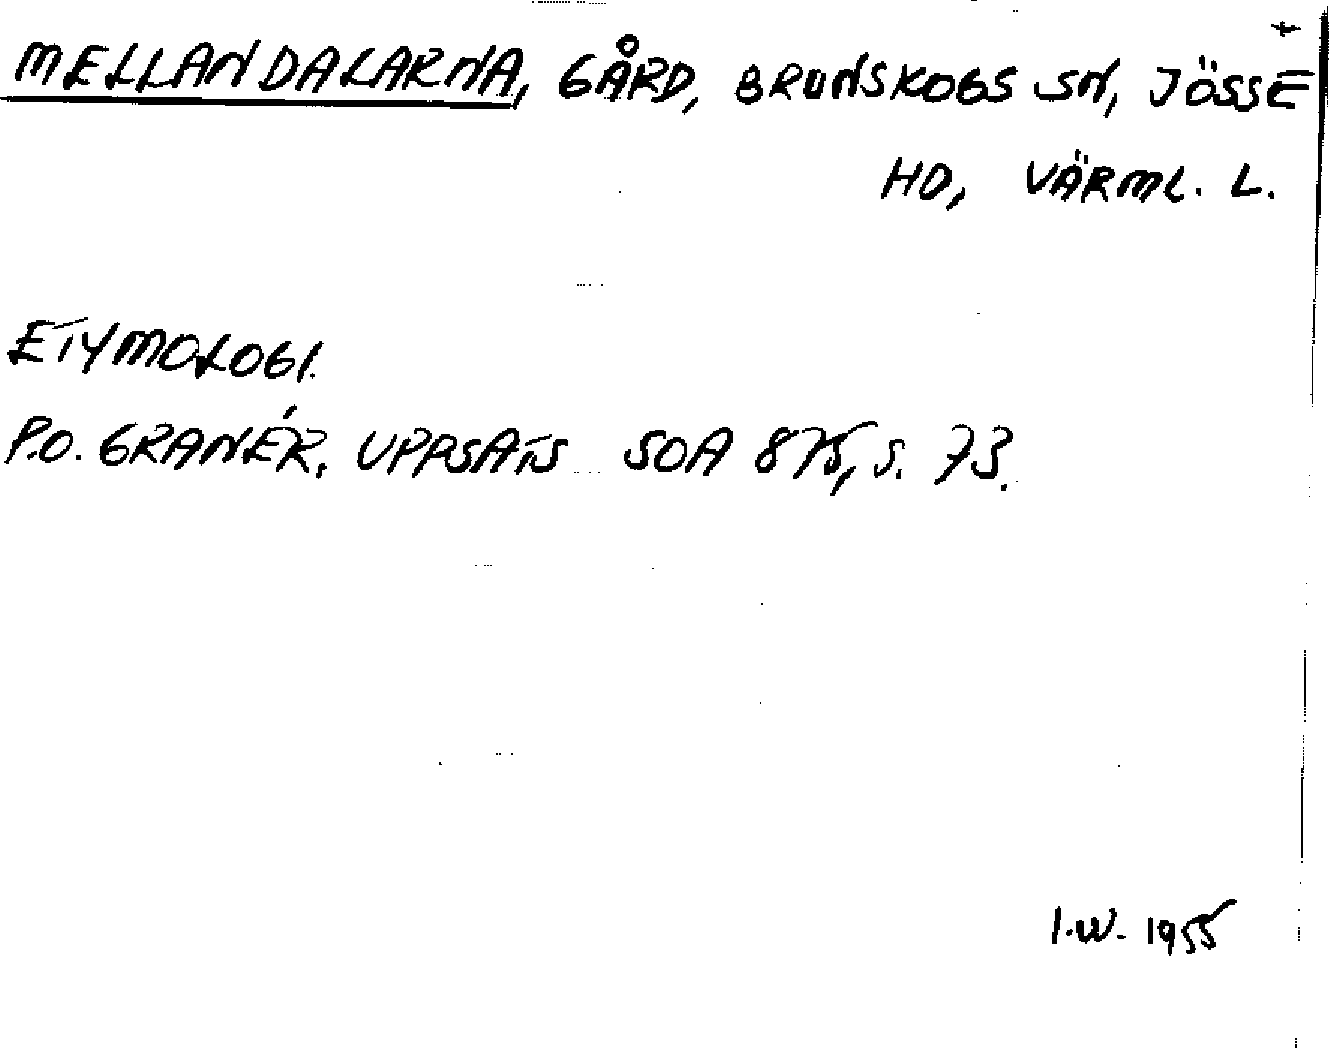 MELLANDALARNA, GÅRD, BRUNSKOGS SN, JÖSSE
HD, VÄRML. L.
ETYMOLOGI.
P.O. GRANÉR. UPPSATS SOA 875, S. 73.
I.W. 1955